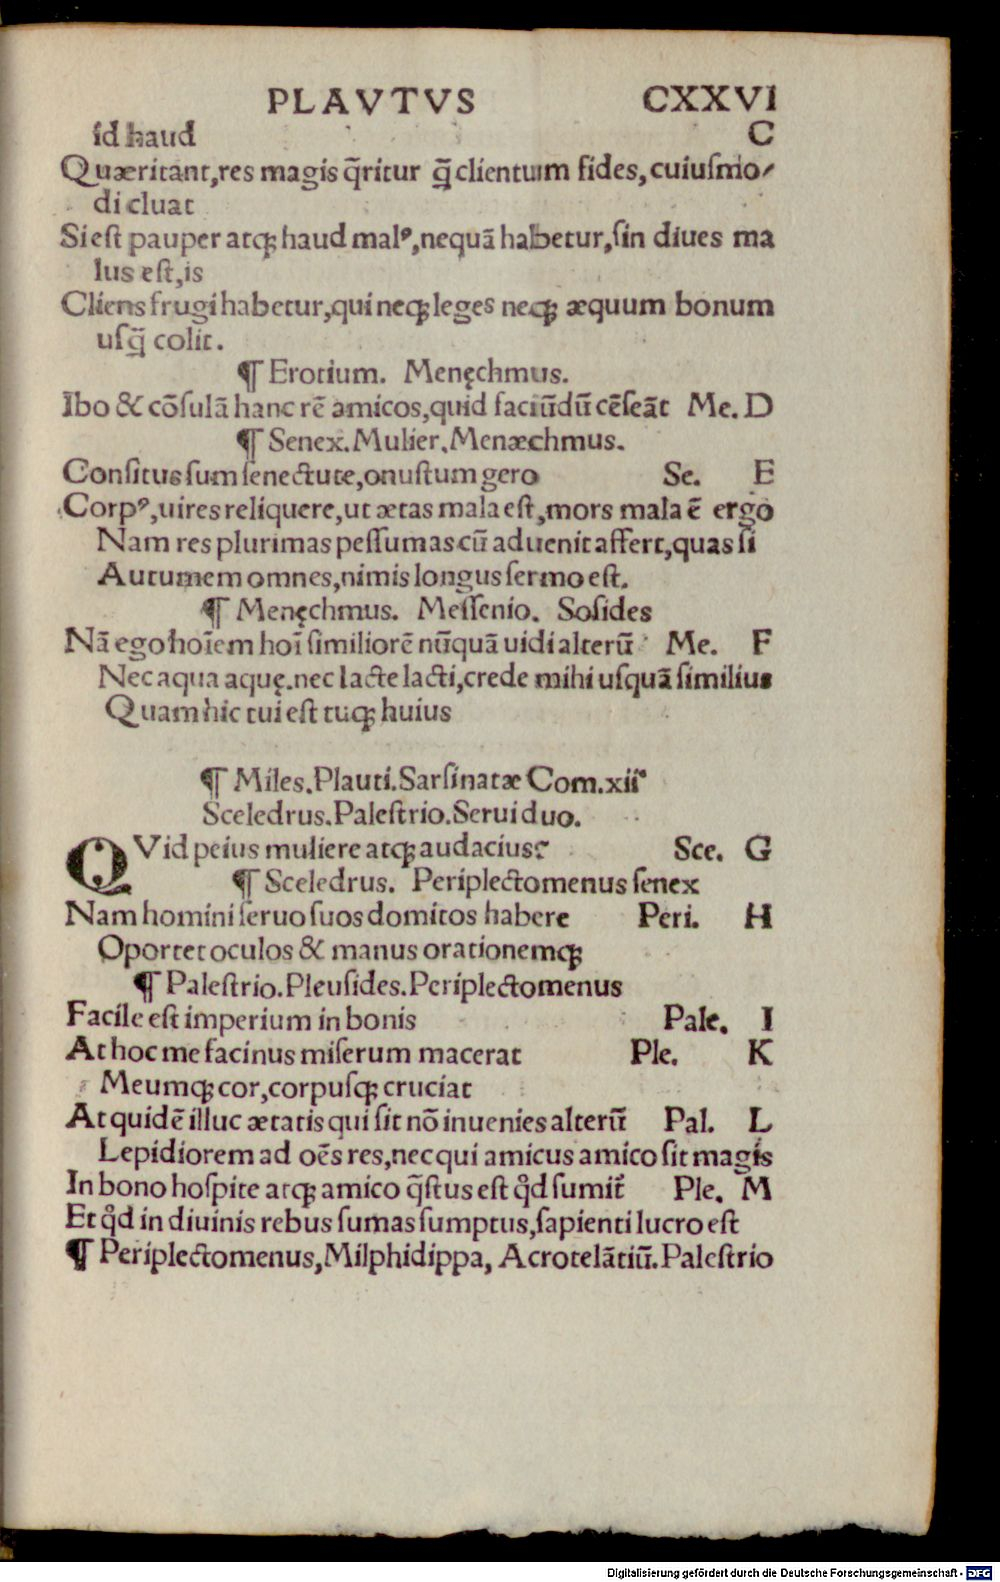 PLAVTVS CXXVI
id haud C
Quæritant,res magis q̃ritur q̃ clientum fides,cuiuſmo-
di cluat
Si est pauper atq; haud malꝰ,nequã habetur,ſin diues ma
lus eſt,is
Cliens frugi habetur,qui neq; leges neq; æquum bonum
uſq̃ colit.
¶ Erotium. Menęchmus.
Ibo & cõſulã hanc rẽ amicos,quid faciũdũ cẽſeãt Me. D
¶ Senex.Mulier.Menæchmus.
Conſitus ſum ſenectute,onuſtum gero Se. E
Corpꝰ,uires reliquere,ut ætas mala eſt,mors mala ẽ ergo
Nam res plurimas peſſumas cũ aduenit affert,quas ſi
Autumem omnes,nimis longus ſermo eſt.
¶ Menęchmus. Meſſenio. Soſides
Nã ego hoĩem hoĩ ſimiliorẽ nũquã uidi alterũ Me. F
Nec aqua aquę.nec lacte lacti,crede mihi uſquã ſimilius
Quam hic tui eſt tuq; huius
¶ Miles.Plauti.Sarſinatæ Com.xii
Sceledrus.Paleſtrio.Serui duo.
QVid peius muliere atq; audacius? Sce. G
¶ Sceledrus. Periplectomenus ſenex
Nam homini ſeruo ſuos domitos habere Peri. H
Oportet oculos & manus orationemq;
¶ Paleſtrio.Pleuſides.Periplectomenus
Facile eſt imperium in bonis Pale. I
At hoc me facinus miſerum macerat Ple. K
Meumq; cor,corpuſq; cruciat
At quidẽ illuc ætatis qui ſit nõ inuenies alterũ Pal. L
Lepidiorem ad oẽs res,nec qui amicus amico ſit magis
In bono hoſpite atq; amico q̃ſtus eſt qd̓ ſumit̃ Ple. M
Et qd̓ in diuinis rebus ſumas ſumptus,ſapienti lucro eſt
¶ Periplectomenus,Milphidippa, Acrotelãtiũ.Paleſtrio
Digitalisierung gefördert durch die Deutsche Forschungsgemeinschaft - DFG